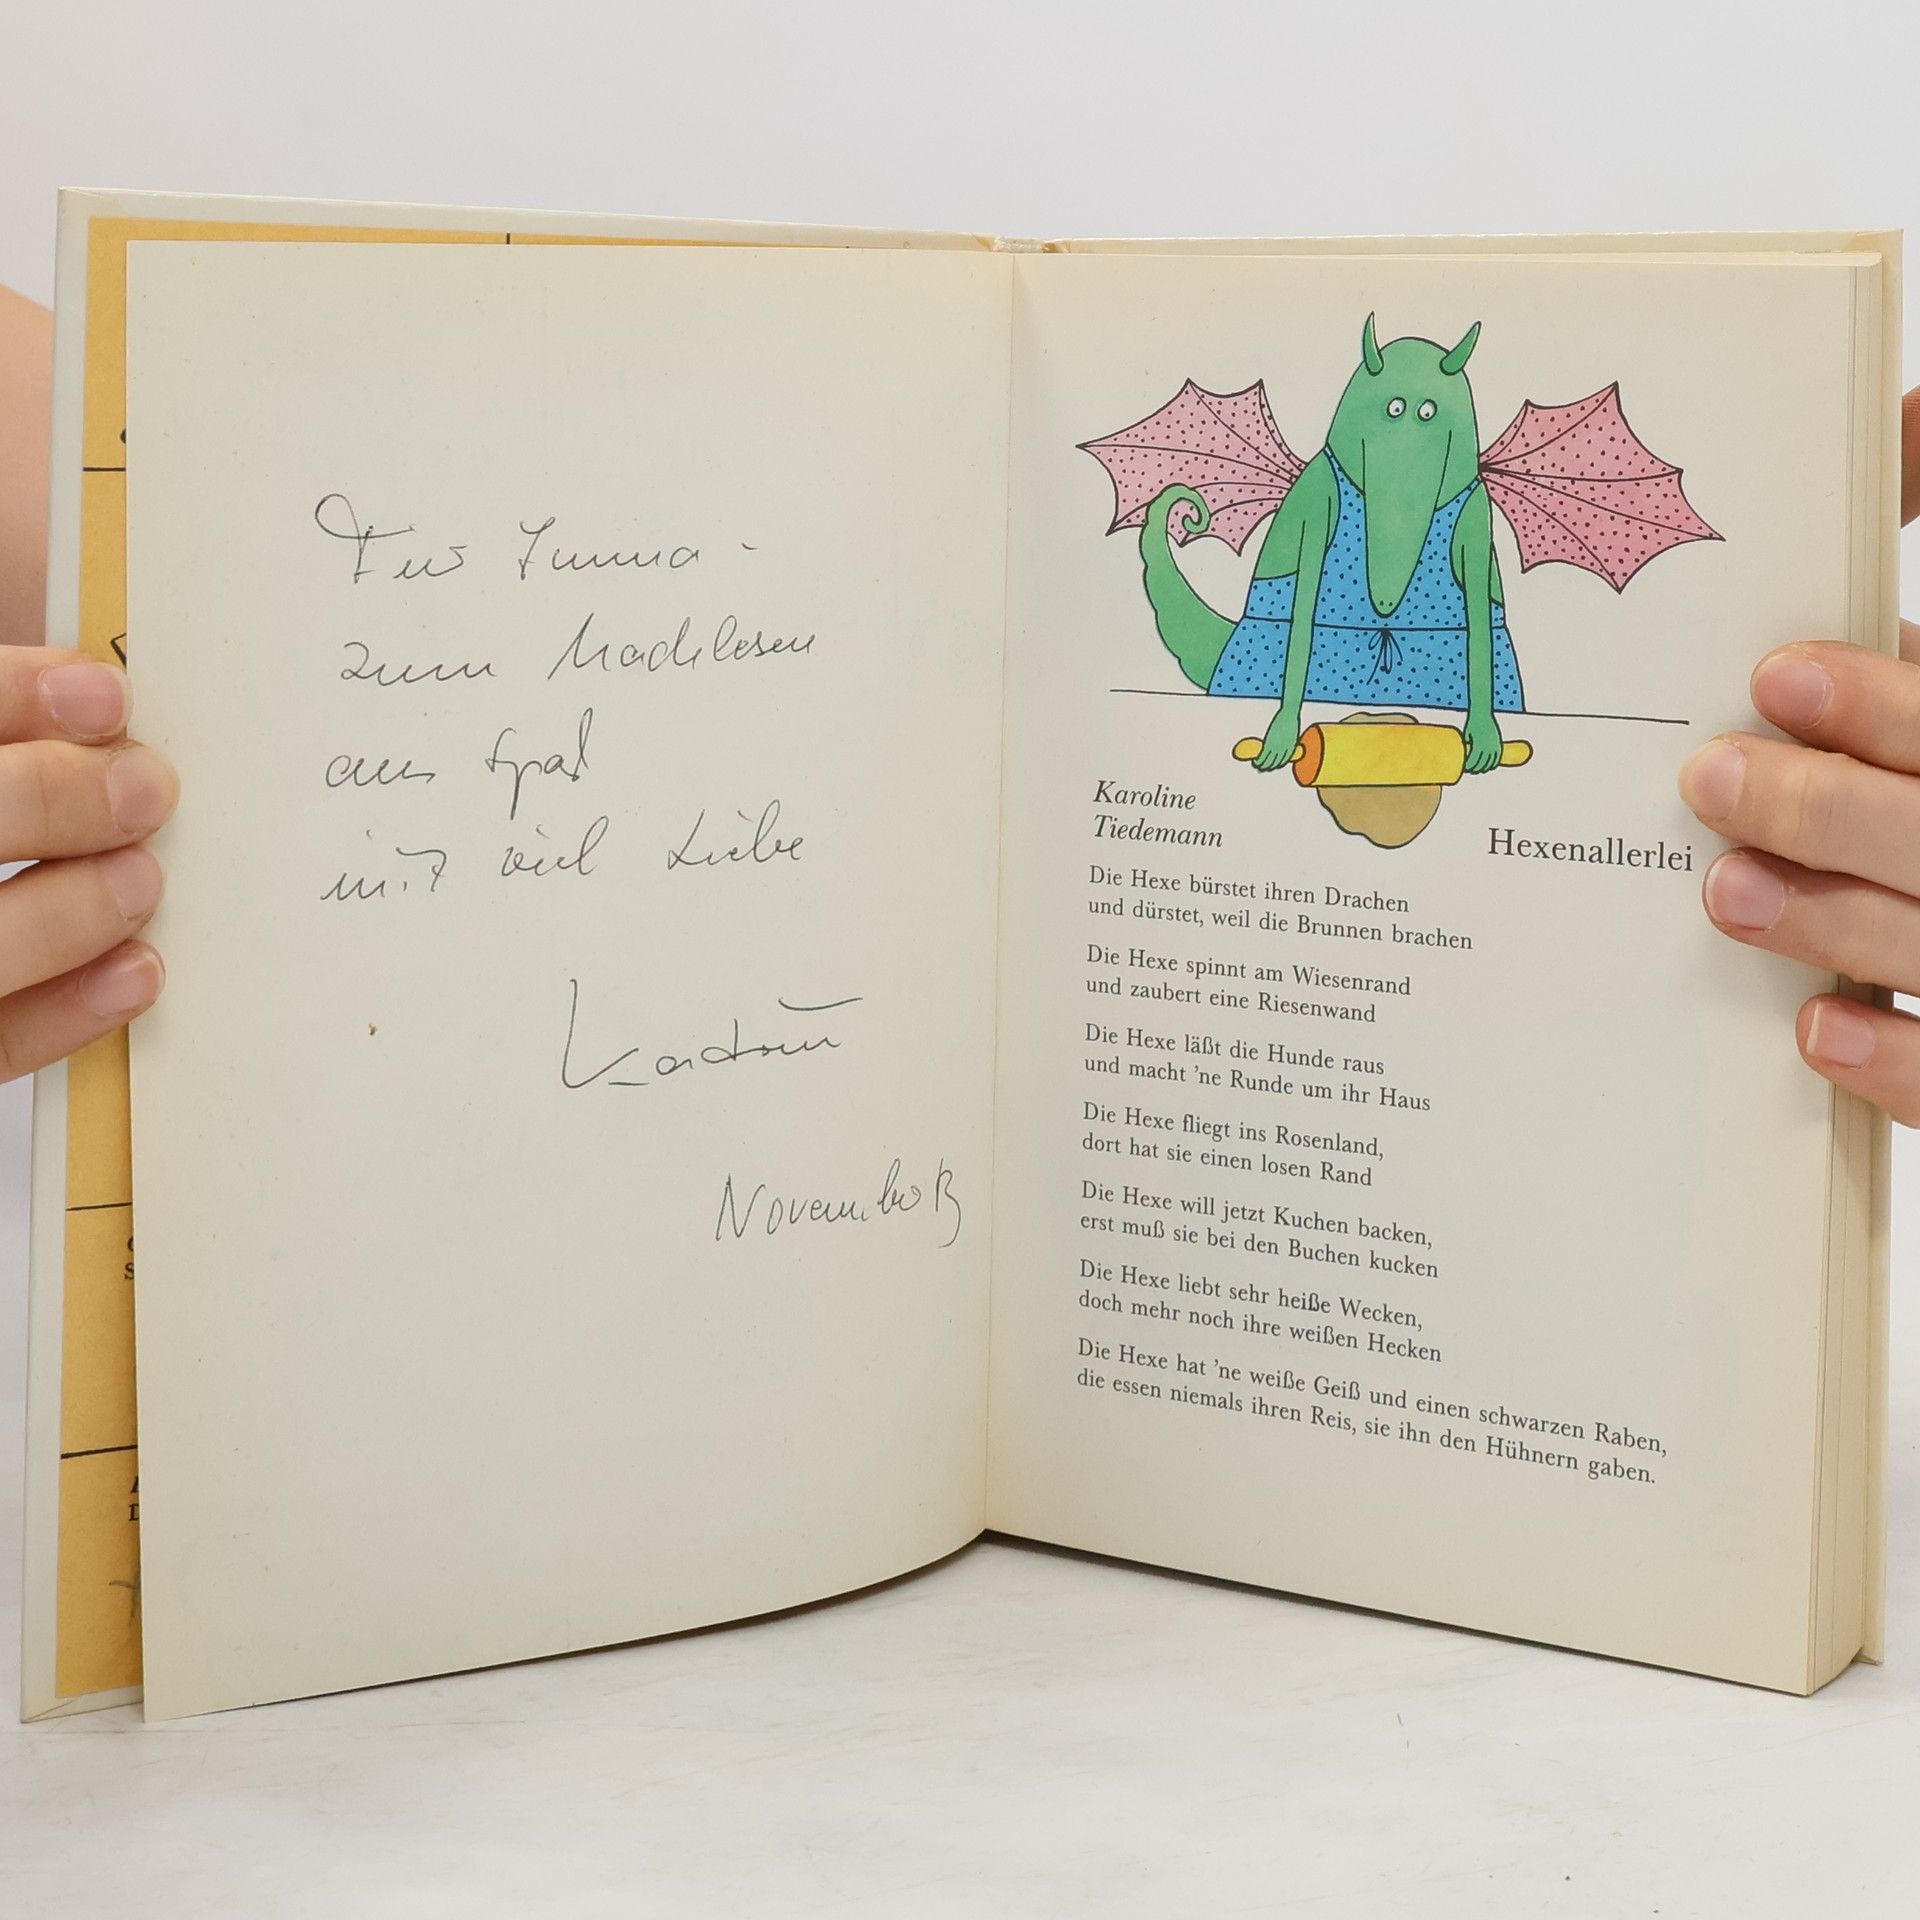 Für
zum Nachlesen
aus Spaß
mit viel Liebe
November
Karoline
Tiedemann
Hexenallerlei
Die Hexe bürstet ihren Drachen
und dürstet, weil die Brunnen brachen
Die Hexe spinnt am Wiesenrand
und zaubert eine Riesenwand
Die Hexe läßt die Hunde raus
und macht ’ne Runde um ihr Haus
Die Hexe fliegt ins Rosenland,
dort hat sie einen losen Rand
Die Hexe will jetzt Kuchen backen,
erst muß sie bei den Buchen kucken
Die Hexe liebt sehr heiße Wecken,
doch mehr noch ihre weißen Hecken
Die Hexe hat ’ne weiße Geiß und einen schwarzen Raben,
die essen niemals ihren Reis, sie ihn den Hühnern gaben.